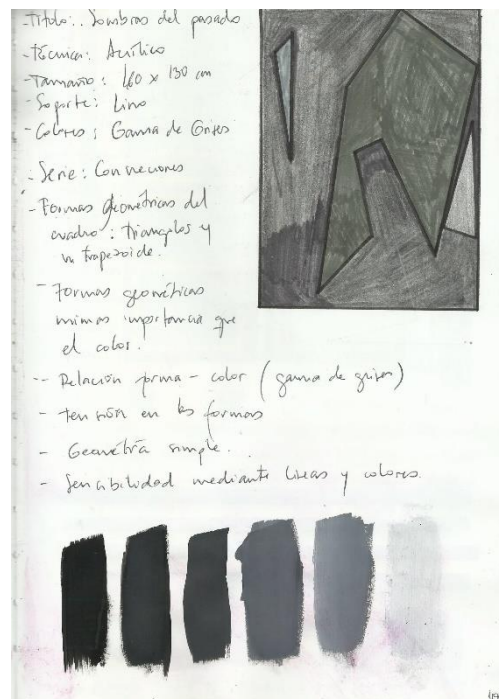 -Título:. Sombras del pasado
-Técnica: Acrílico
-Tamaño: 160 x 130 cm
-Soporte: Lino
-Colores: Gama de Grises
-Serie: Conexiones
-Formas geométricas del
cuadro: triángulos y
un trapezoide.
- Formas geométricas
misma importancia que
el color.
-- Relación forma - color (gama de grises)
- tensión en las formas
- Geometría simple.
- Sensibilidad mediante líneas y colores.